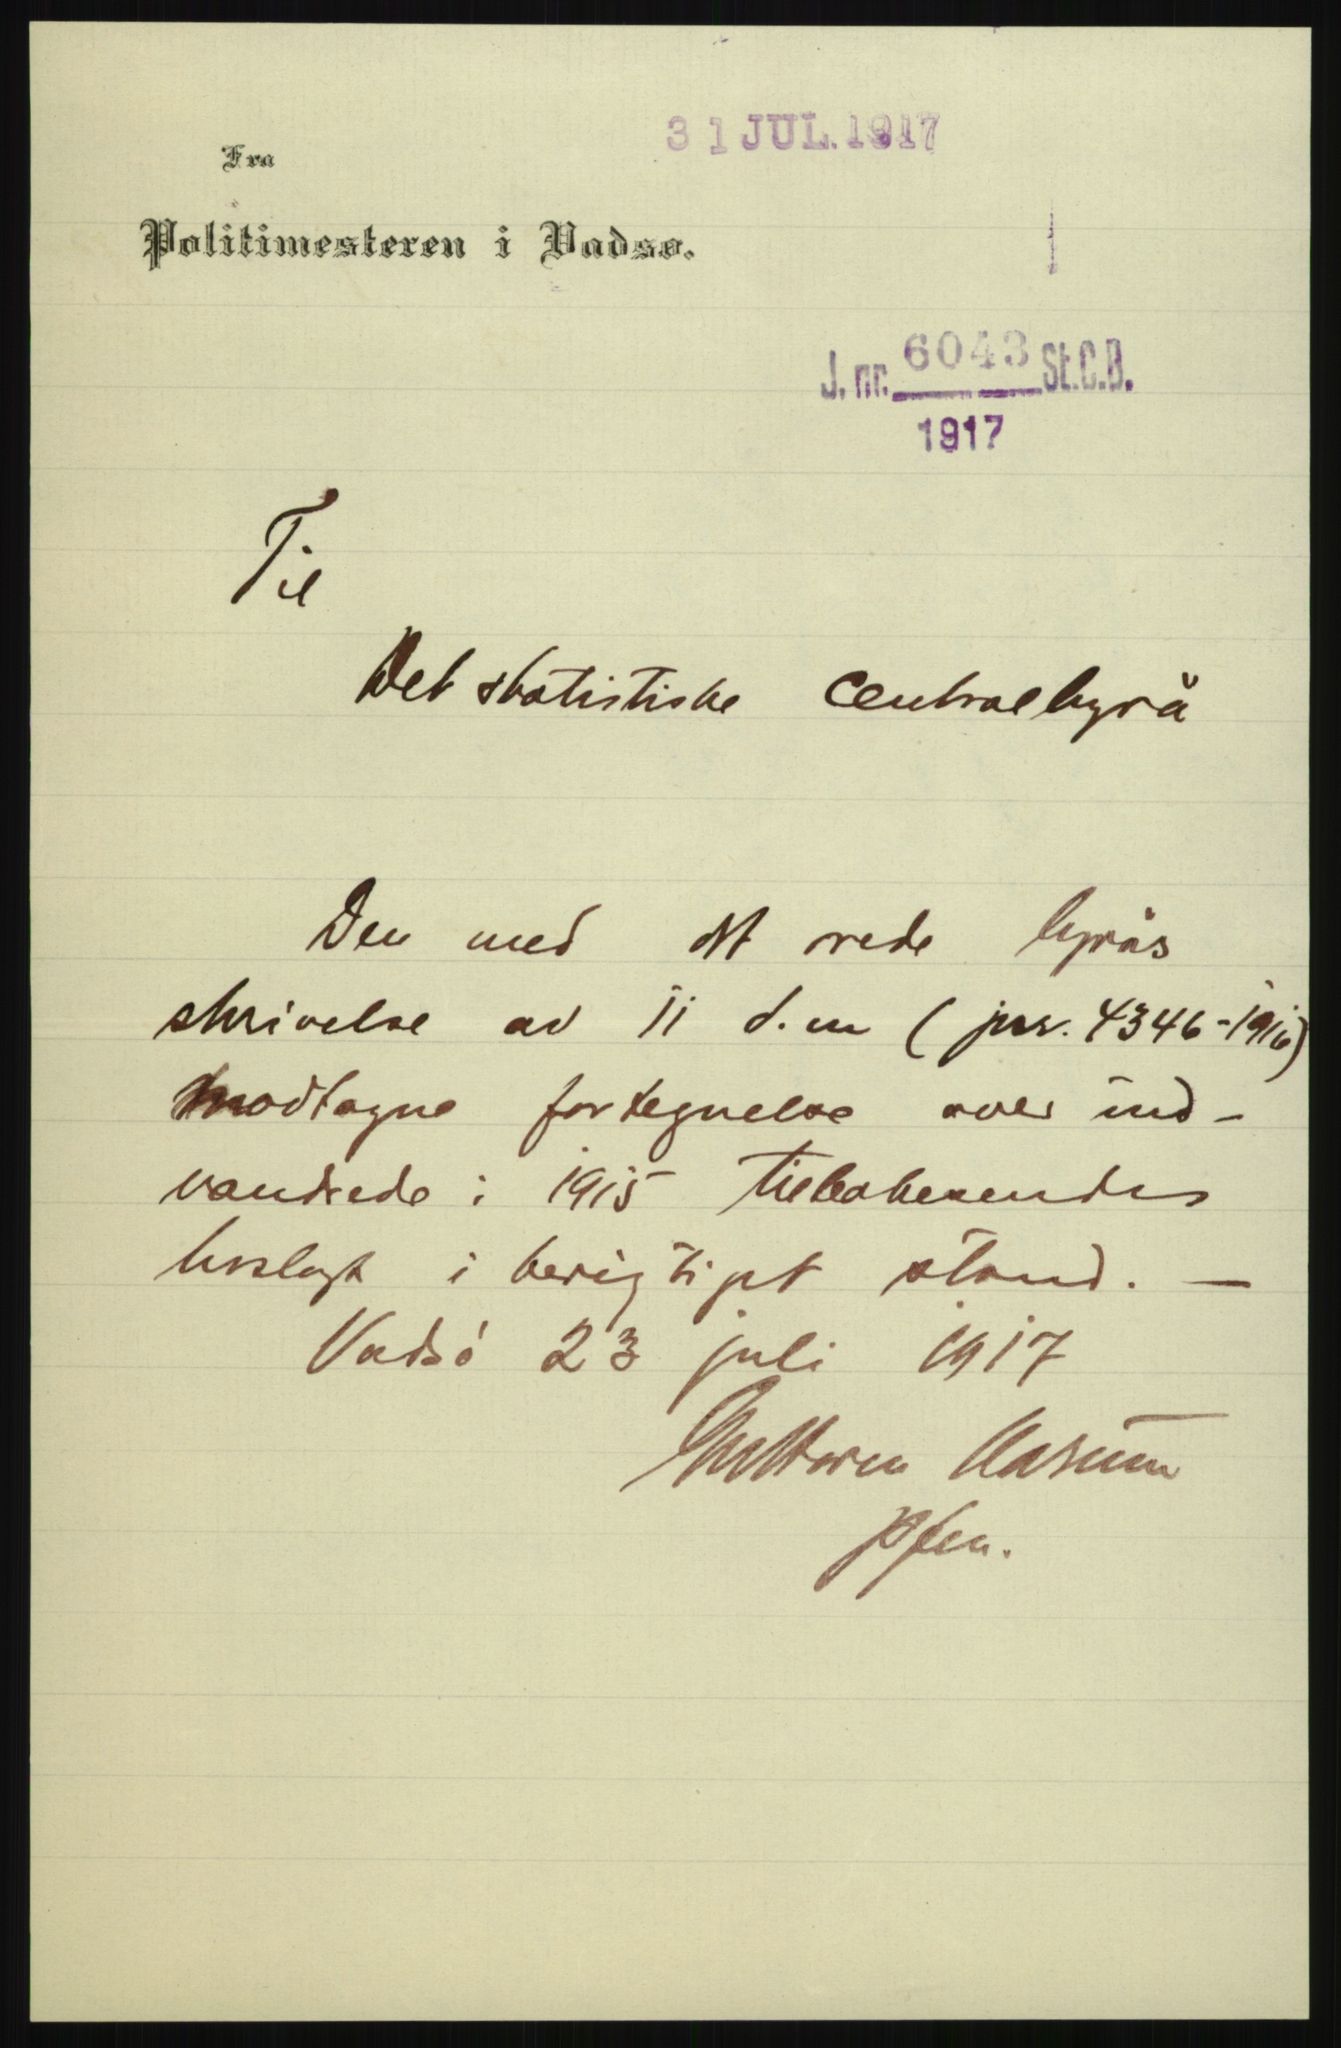 31 JUL. 1917
Fra
Politimesteren i Vadsø.
J. nr. 6043 St.C.B.
1917
Til
Det statistiske Centralbyrå
Den med det ærede byrås
skrivelse av 11 d.m (jnr. 4346-1916)
modtagne fortegnelse over ind-
vandrede i 1915 tilbakesendes
hoslagt i berigtiget stand. —
Vadsø 23 juli 1917
Guttorm